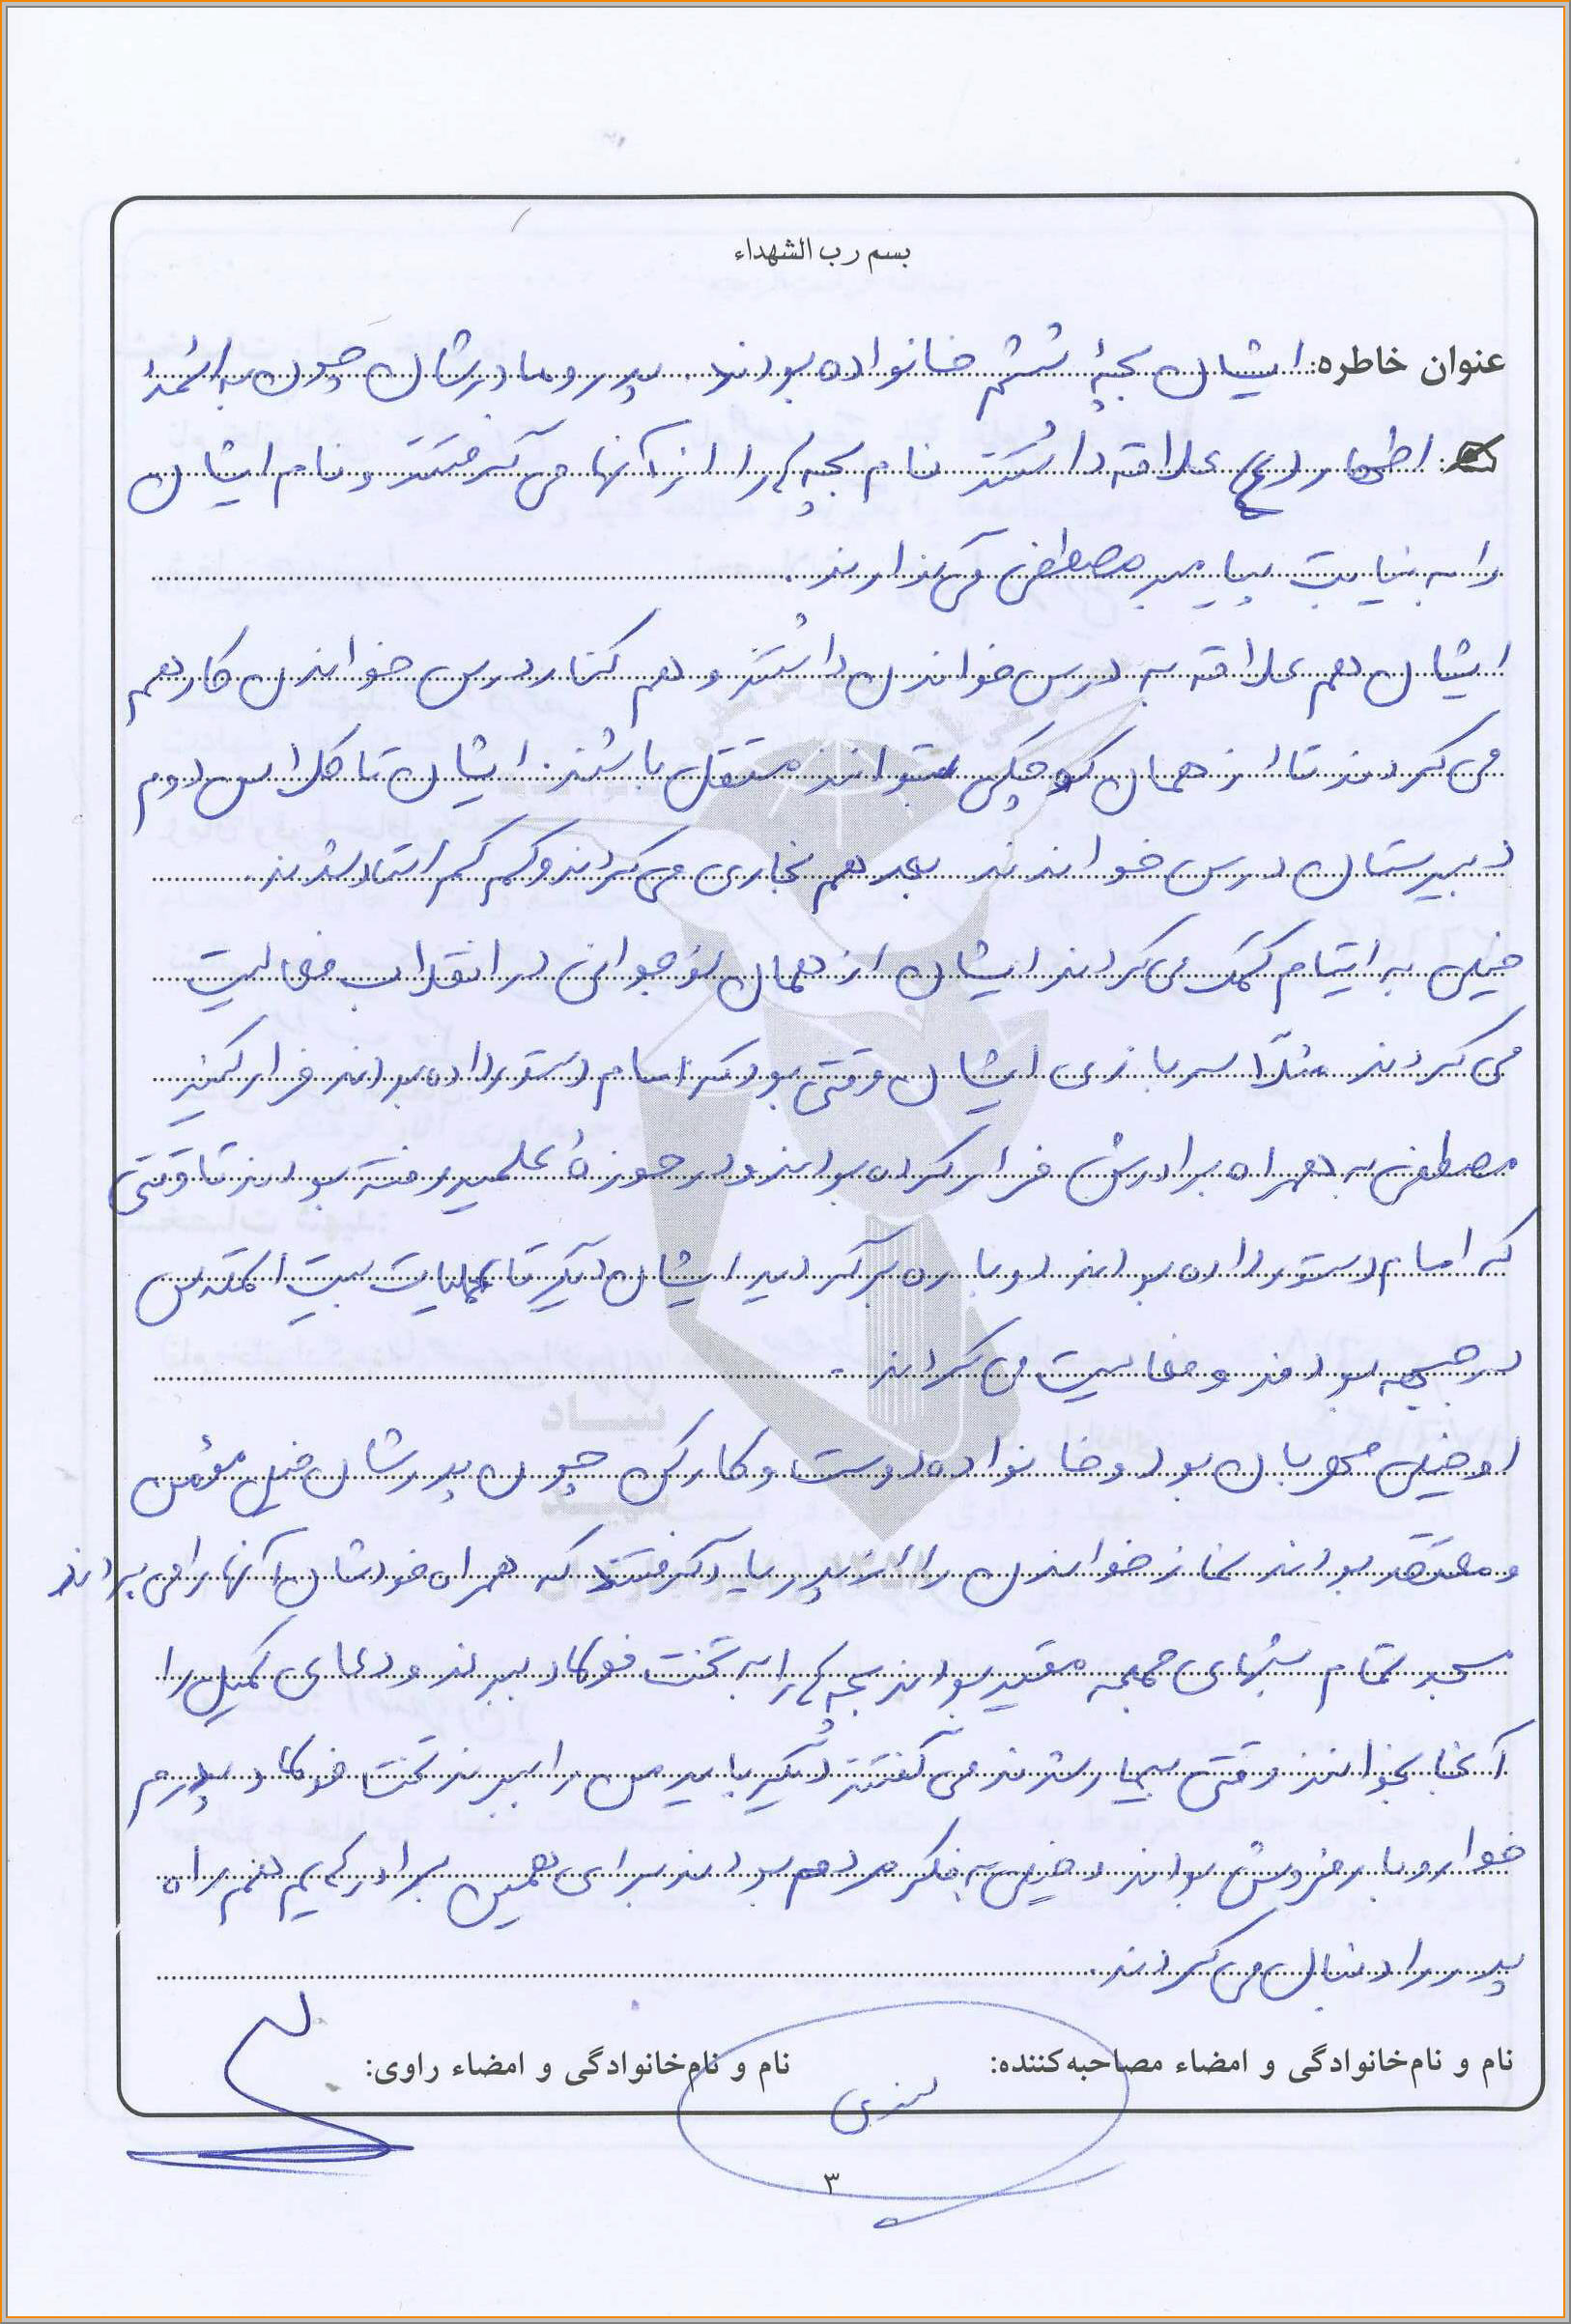 بسم رب الشهداء
عنوان خاطره: ایشان بچهٔ ششم خانواده بودند. پدر و مادرشان چون به ائمهٔ
اطهار (ع) علاقه داشتند نام بچه ها را از آنها می گرفتند و نام ایشان
را به نیابت پیامبر مصطفی می گذارند.
ایشان هم علاقه به درس خواندن داشتند و هم کنار درس خواندن کار هم
می کردند تا از همان کوچکی بتوانند مستقل باشند. ایشان تا کلاس دوم
دبیرستان درس خواندند بعد هم نجاری می کردند و کم کم استاد شدند.
خیلی به ایتام کمک می کردند ایشان از همان نوجوانی در انقلاب فعالیت
می کردند مثلاً سربازی ایشان وقتی بود که امام دستور داده بودند فرار کنید
مصطفی به همراه برادرش فرار کرده بودند و در حوزهٔ علمیه رفته بودند تا وقتی
که امام دستور داده بودند دوباره برگردید ایشان دیگر تا عملیات بیت المقدس
در جبهه بودند و فعالیت می کردند.
او خیلی مهربان بود و خانواده دوست و کارکن چون پدرشان خیلی مؤمن
و معتقد بودند نماز خواندن را از پدر یاد گرفتند که همراه خودشان آنها را می بردند
مسجد تمام شبهای جمعه مقید بودند بچه ها را به تخت فولاد ببرند و دعای کمیل را
آنجا بخوانند وقتی بیمار شدند می گفتند دیگر باید من را ببرند تخت فولاد پدرم
خواروبار فروش بودند و خیلی به فکر مردم بودند برای همین برادرهایم هم راه
پدر را دنبال می کردند.
نام و نام خانوادگی و امضاء مصاحبه کننده: نام و نام خانوادگی و امضاء راوی:
۳